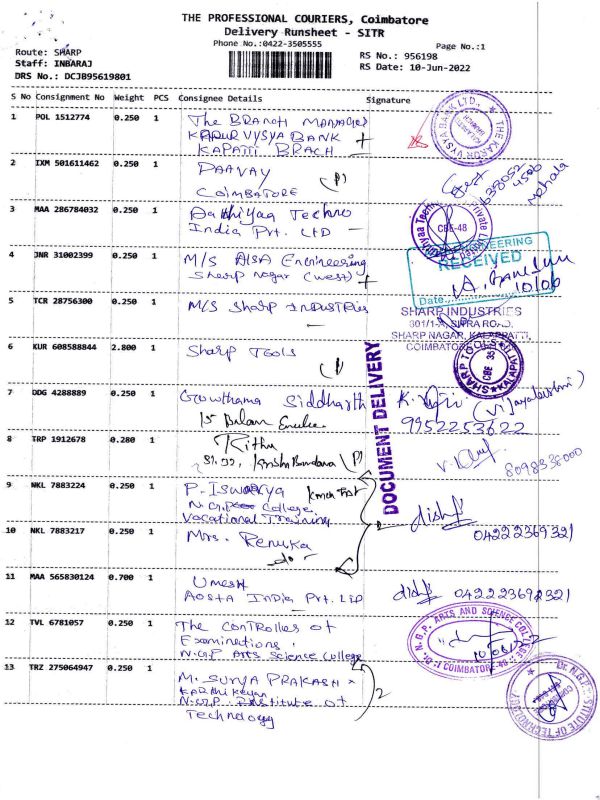 THE PROFESSIONAL COURIERS, Coimbatore
Delivery Runsheet - SITR
Phone No.:0422-3505555
Page No.:1
Route: SHARP
Staff: INBARAJ
DRS No.: DCJB95619801
RS No.: 956198
RS Date: 10-Jun-2022
S No Consignment No Weight PCS Consignee Details Signature
1 POL 1512774 0.250 1 The BRANCH MANAGER
KARUR VYSYA BANK
KAPATTI BRACH
2 IXM 501611462 0.250 1 PAAVAY
COIMBATORE
3 MAA 286784032 0.250 1 Aathiyaa Techno
India Pvt. LTD
CBE-48
4 JNR 31002399 0.250 1 M/S AISA Engineering
Sharp Nagar (West)
ENGINEERING
RECEIVED
Date
10/06
5 TCR 28756300 0.250 1 M/S Sharp INDUSTRIES
SHARP INDUSTRIES
301/1-A, SITRA ROAD,
SHARP NAGAR, KALAPPATTI,
COIMBATORE
6 KUR 608588844 2.800 1 Sharp Tools
SHARP TOOLS
CBE 35
DOCUMENT DELIVERY
7 DDG 4288889 0.250 1 Gowthama Siddharth
9952253622
8 TRP 1912678 0.280 1 Rithu
8098338000
9 NKL 7883224 0.250 1 P. ISWARYA
N.G.P College
Vocational Training
10 NKL 7883217 0.250 1 Mrs. Renuka
-do-
04222369321
11 MAA 565830124 0.700 1 Umesh
AOSTA India Pvt. LTD
04222369321
12 TVL 6781057 0.250 1 The Controller of
Examinations
N.G.P Arts Science College
N.G.P. ARTS AND SCIENCE COLLEGE
COIMBATORE-48
13 TRZ 275064947 0.250 1 M. SURYA PRAKASH
Karthikeyan
N.G.P. Institute of
Technology
2